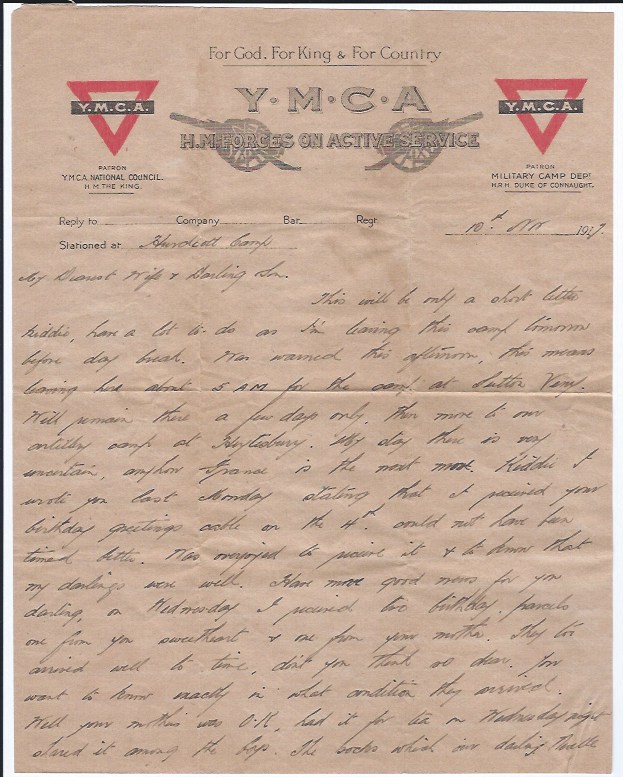 For God. For King & For Country
Y·M·C·A
H.M. FORCES ON ACTIVE SERVICE
Y.M.C.A.
PATRON
Y.M.C.A. NATIONAL COUNCIL.
H.M. THE KING.
Y.M.C.A.
PATRON
MILITARY CAMP DEPT.
H.R.H. DUKE OF CONNAUGHT.
Reply to Company Bat. Regt. 10th Nov 1917.
Stationed at Hurdcott Camp
My Dearest Wife & Darling Son.
This will be only a short letter
Kiddie, have a lot to do as I'm leaving this camp tomorrow
before day break. Was warned this afternoon, this means
leaving here about 5 AM for the camp at Sutton Veny.
Will remain there a few days only, then move to our
artillery camp at Heytesbury. My stay there is very
uncertain, anyhow France is the next move. Kiddie I
wrote you last Monday stating that I received your
birthday greetings cable on the 4th. could not have been
timed better. Was overjoyed to receive it & to know that
my darlings were well. Have more good news for you
darling, on Wednesday I received two birthday parcels
one from you sweetheart & one from your mother. They too
arrived well to time, don't you think so dear. You
want to know exactly in what condition they arrived.
Well your mothers was O.K, had it for tea on Wednesday night
shared it among the boys. The socks which our darling